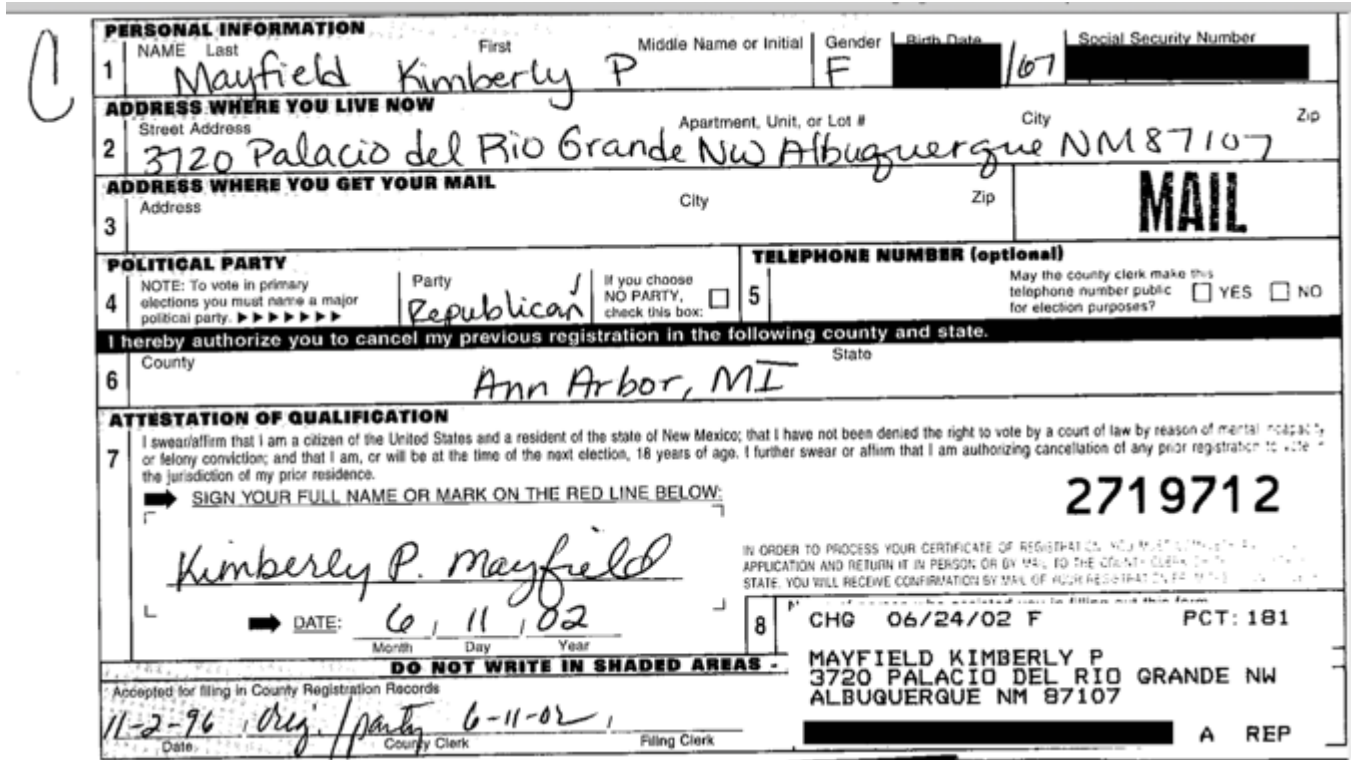 C
PERSONAL INFORMATION
1 NAME Last First Middle Name or Initial Gender Birth Date Social Security Number
Mayfield Kimberly P F /67
ADDRESS WHERE YOU LIVE NOW
2 Street Address Apartment, Unit, or Lot # City Zip
3720 Palacio del Rio Grande NW Albuquerque NM 87107
ADDRESS WHERE YOU GET YOUR MAIL
3 Address City Zip
MAIL
POLITICAL PARTY TELEPHONE NUMBER (optional)
4 NOTE: To vote in primary elections you must name a major political party. ▶▶▶▶▶▶▶ Party Republican If you choose NO PARTY, check this box: 5 May the county clerk make this telephone number public for election purposes? YES NO
I hereby authorize you to cancel my previous registration in the following county and state.
6 County State
Ann Arbor, MI
ATTESTATION OF QUALIFICATION
7 I swear/affirm that I am a citizen of the United States and a resident of the state of New Mexico; that I have not been denied the right to vote by a court of law by reason of mental incapacity
or felony conviction; and that I am, or will be at the time of the next election, 18 years of age. I further swear or affirm that I am authorizing cancellation of any prior registration to vote in
the jurisdiction of my prior residence.
SIGN YOUR FULL NAME OR MARK ON THE RED LINE BELOW:
2719712
Kimberly P. Mayfield
IN ORDER TO PROCESS YOUR CERTIFICATE OF REGISTRATION, YOU MUST
APPLICATION AND RETURN IT IN PERSON OR BY MAIL TO THE COUNTY CLERK
STATE. YOU WILL RECEIVE CONFIRMATION BY MAIL OF YOUR REGISTRATION
DATE: 6, 11, 02
Month Day Year
8 Name of person who assisted you in filling out this form
CHG 06/24/02 F PCT: 181
DO NOT WRITE IN SHADED AREAS -
MAYFIELD KIMBERLY P
3720 PALACIO DEL RIO GRANDE NW
ALBUQUERQUE NM 87107
Accepted for filing in County Registration Records
11-2-96, orig. / party 6-11-02,
Date County Clerk Filing Clerk
A REP